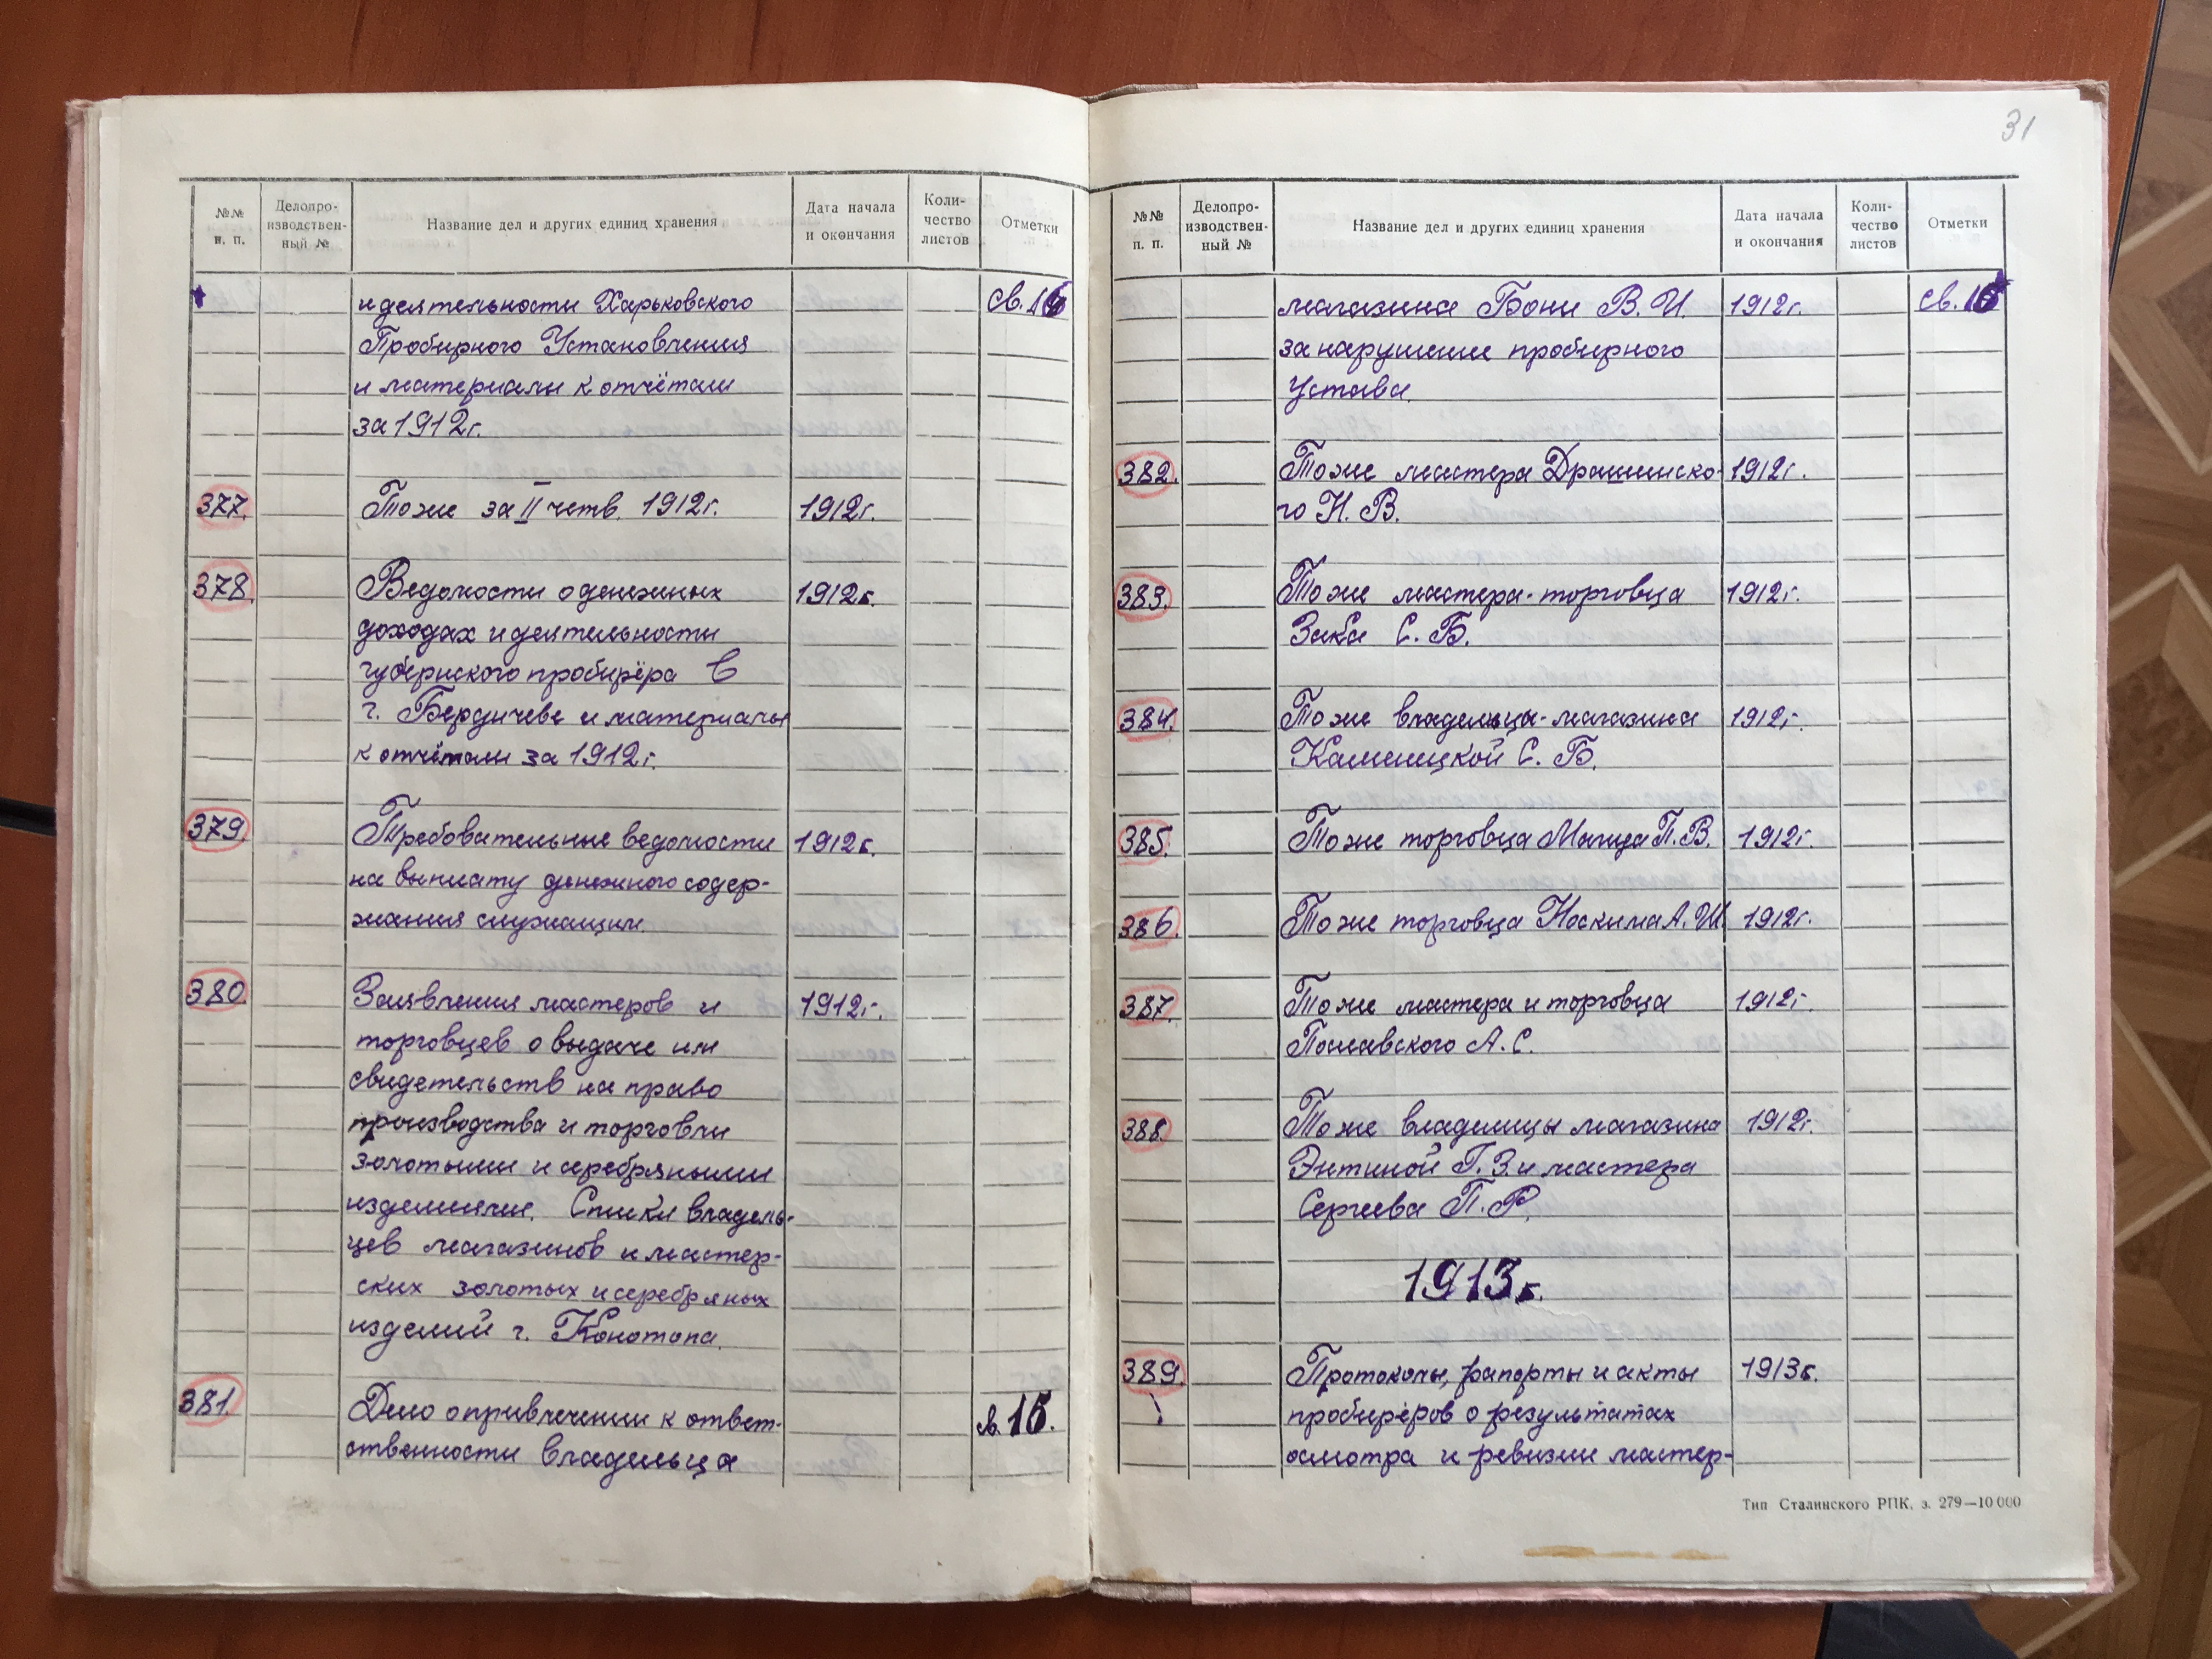 №№ п. п.
Делопро-
изводствен-
ный №
Название дел и других единиц хранения
Дата начала
и окончания
Коли-
чество
листов
Отметки
и деятельности Харьковского
св.
Пробирного Установления
и материалы к отчётам
за 1912г.
377. То же за II четв. 1912г. 1912г.
378. Ведомости о денежных 1912г.
доходах и деятельности
губернского пробирёра в
г. Бердичеве и материалы
к отчётам за 1912г.
379. Требовательные ведомости 1912г.
на выплату денежного содер-
жания служащим.
380. Заявления мастеров и 1912г.
торговцев о выдаче им
свидетельств на право
производства и торговли
золотыми и серебряными
изделиями. Списки владель-
цев магазинов и мастер-
ских золотых и серебряных
изделий г. Конотопа.
381. Дело о привлечении к ответ- св. 15.
ственности владельца
31
№№
п. п.
Делопро-
изводствен-
ный №
Название дел и других единиц хранения
Дата начала
и окончания
Коли-
чество
листов
Отметки
магазина Бони В. И. 1912г. св. 15
за нарушение пробирного
Устава.
382. То же мастера 1912г.
го Н. В.
383. То же мастера-торговца 1912г.
Зака С. Б.
384. То же владельца-магазина 1912г.
Каменицкой С. Б.
385. То же торговца П. В. 1912г.
386. То же торговца Носкина А. Ш. 1912г.
387. То же мастера и торговца 1912г.
А. С.
388. То же владелицы магазина 1912г.
Энтиной Г. З. и мастера
Сергеева П. Р.
1913г.
389. Протоколы, рапорты и акты 1913г.
пробирёров о результатах
осмотра и ревизии мастер-
Тип Сталинского РПК, з. 279—10 000